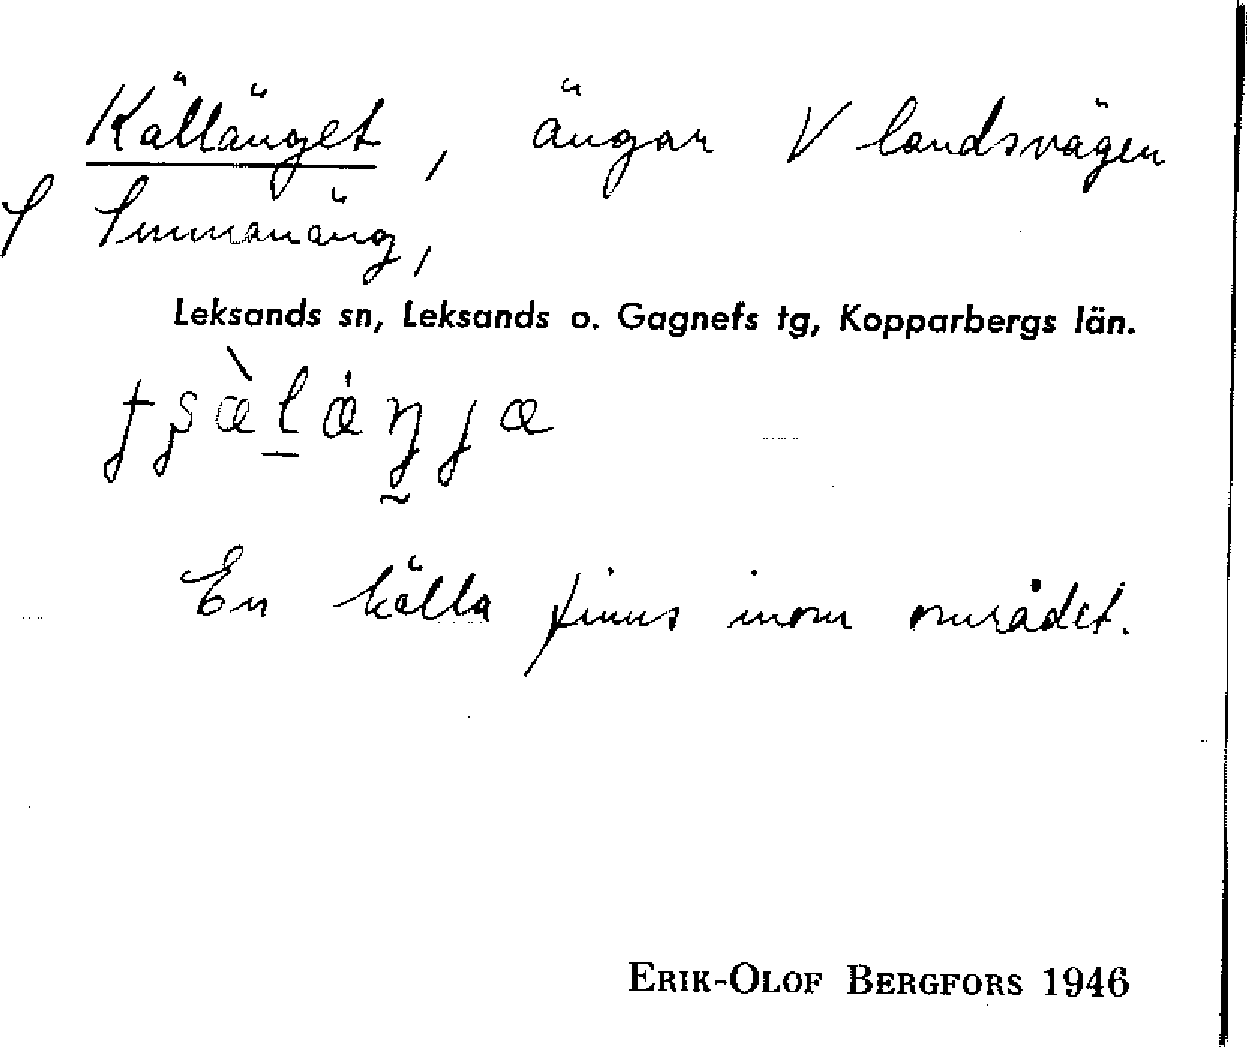 Källänget, ängar V landsvägen
S Sunnanäng,
Leksands sn, Leksands o. Gagnefs tg, Kopparbergs län.
En källa finns inom området.
ERIK-OLOF BERGFORS 1946